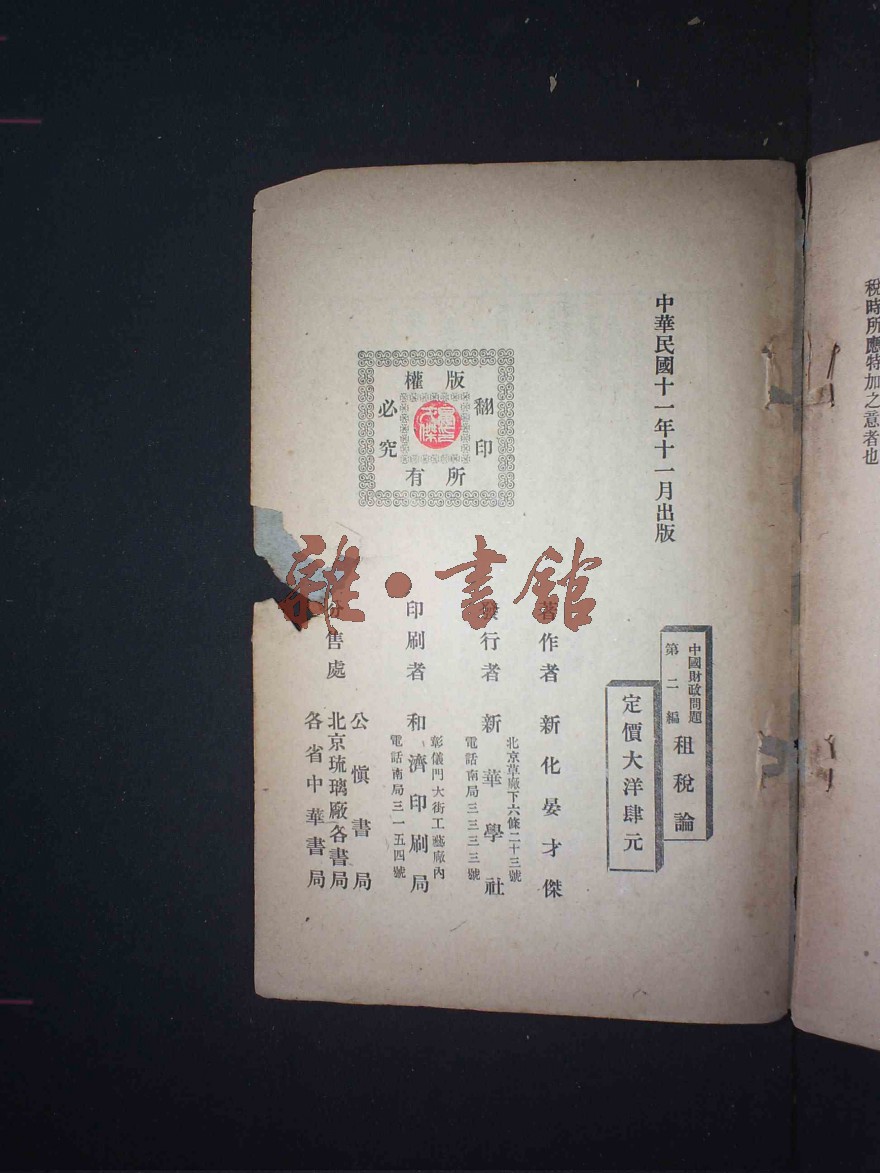 稅時所應特加之意者也
中華民國十一年十一月出版
中國財政問題
第二編
租稅論
定價大洋肆元
著作者 新化晏才傑
北京草廠下六條二十三號
發行者 新華學社
電話南局三三三三號
彰儀門大街工藝廠內
印刷者 和濟印刷局
電話南局三一五四號
公愼書局
分售處 北京琉璃廠各書局
各省中華書局
版權所有
翻印必究
雜·書館